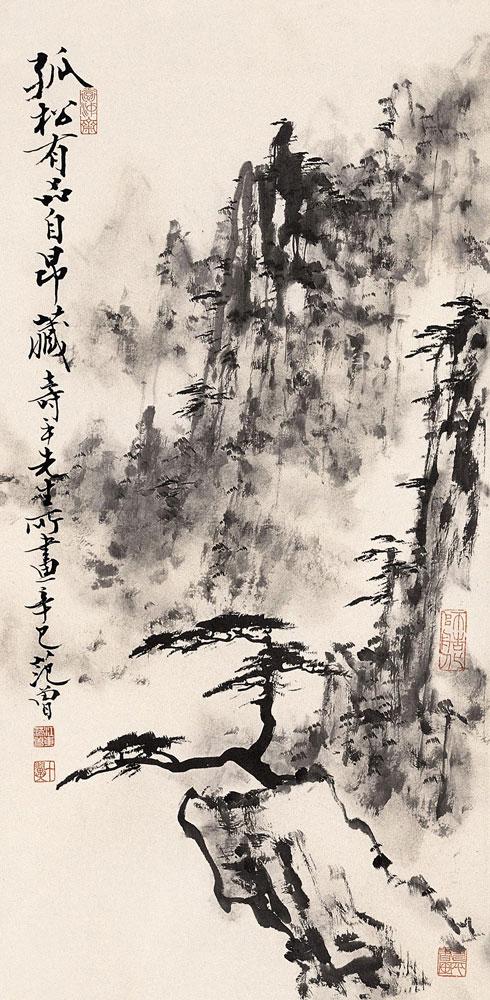 孤松有品自昂藏 壽平先生所畫 辛巳 范曾